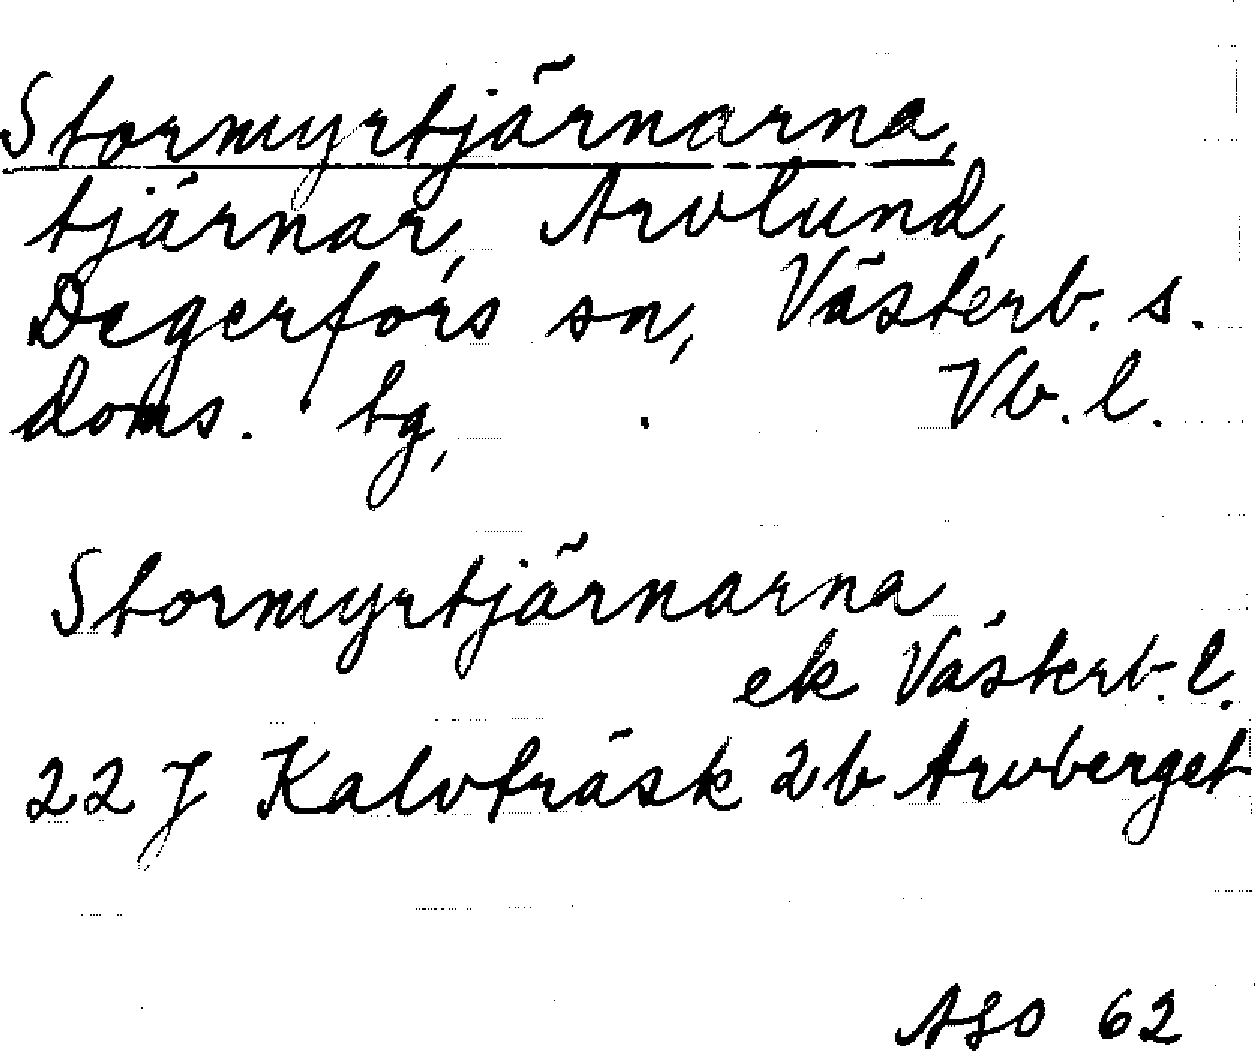 Stormyrtjärnarna,
tjärnar, Arvlund,
Degerfors sn, Västerb. s.
doms. tg, Vb. l.
Stormyrtjärnarna
ek Västerb. l.
22 J Kalvträsk 2b Arvberget
ASO 62